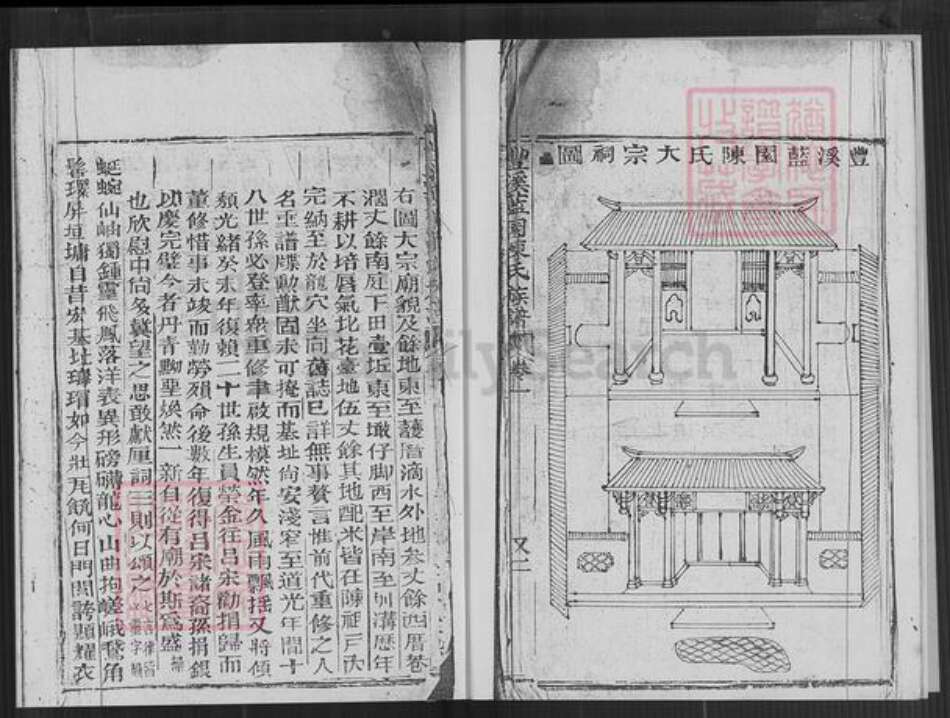 豐溪藍園陳氏大宗祠圖
豐溪藍園陳氏族譜 卷一
又二
右圖大宗廟貌及餘地東至護厝滴水外地叁丈餘西厝巷
濶丈餘南庭下田壹坵東至墘仔脚西至岸南至圳溝歷年
不耕以培唇氣北花臺地伍丈餘其地配米皆在陳祖戶內
完納至於龍穴坐向舊誌已詳無事贅言惟前代重修之人
名垂譜牒勳猷固未可掩而基址尚安淺窄至道光年間十
八世孫必登率衆重修聿啟規模然年久風雨飄搖又將傾
頹光緒癸未年復賴二十世孫生員榮金往呂宋勸捐歸而
董修惜事未竣而勤勞殞命後數年復得呂宋諸裔孫捐銀
以慶完璧今者丹青黝堊煥然一新自從有廟於斯爲盛
也欣慰中尚多冀望之思敢獻俚詞三則以頌之
蜿蜒仙岫獨鍾靈飛鳳落洋表異形磅礴龍心山曲拘嵯峨鰲角
髻環屏垣墉自昔宏基址 如今壯 何日門閭誇顯耀衣
FamilySearch